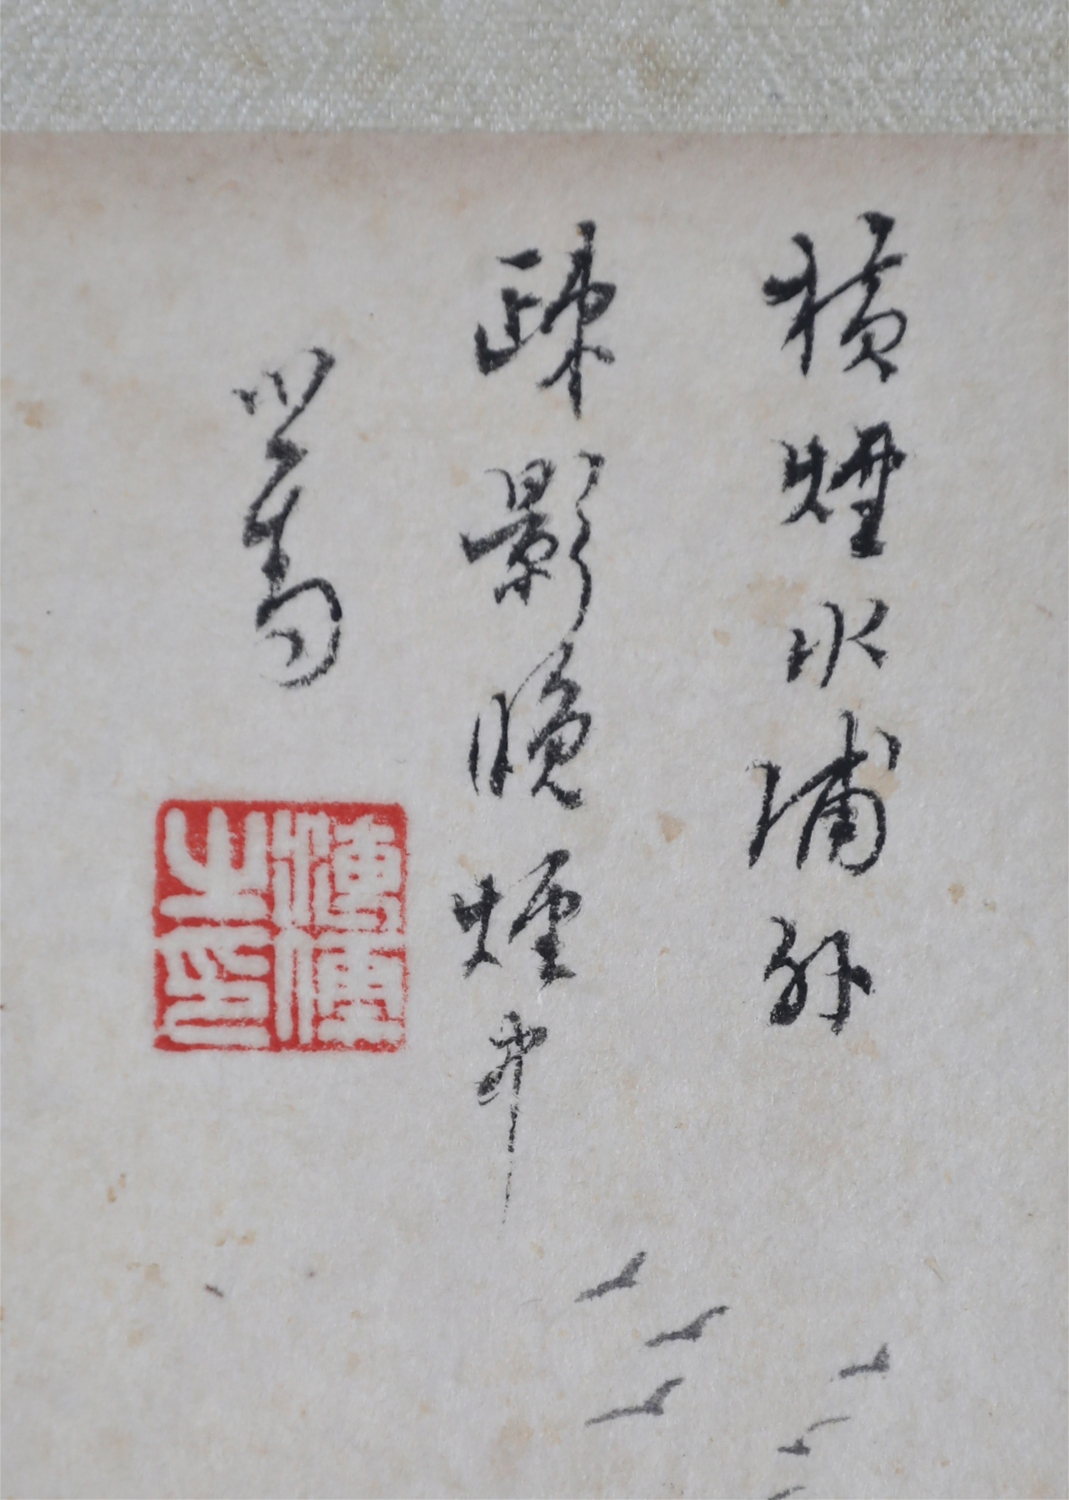 橫煙水浦外
疎影晚煙中
心畬
溥儒之印